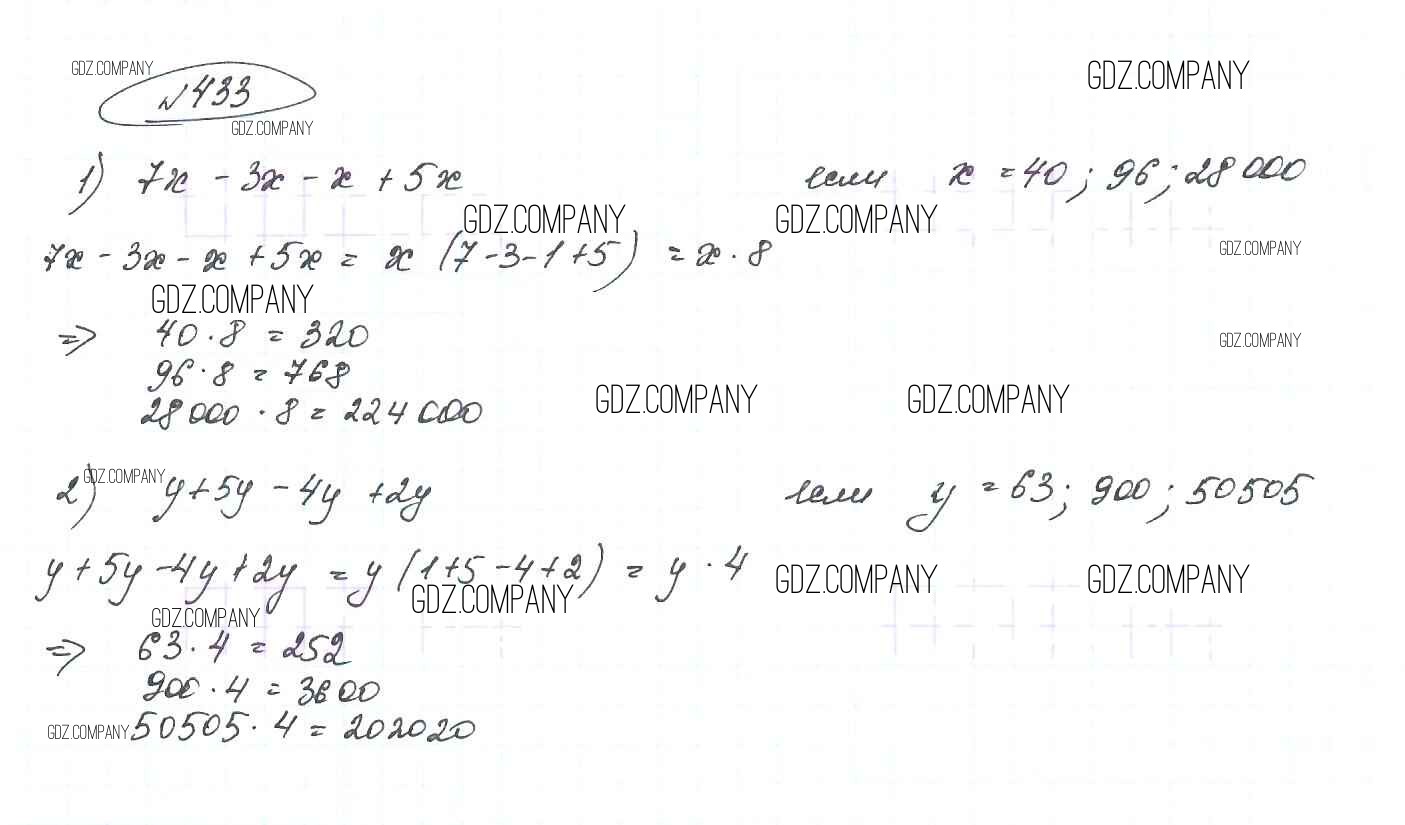 GDZ.COMPANY
GDZ.COMPANY
№433
GDZ.COMPANY
1) 7x - 3x - x + 5x если x = 40; 96; 28 000
GDZ.COMPANY GDZ.COMPANY
GDZ.COMPANY
7x - 3x - x + 5x = x (7-3-1+5) = x · 8
GDZ.COMPANY
=> 40 · 8 = 320
GDZ.COMPANY
96 · 8 = 768
GDZ.COMPANY GDZ.COMPANY
28 000 · 8 = 224 000
GDZ.COMPANY
2) y + 5y - 4y + 2y если y = 63; 900; 50505
y + 5y - 4y + 2y = y (1+5-4+2) = y · 4
GDZ.COMPANY GDZ.COMPANY
GDZ.COMPANY
GDZ.COMPANY
=> 63 · 4 = 252
900 · 4 = 3600
GDZ.COMPANY
50505 · 4 = 202020